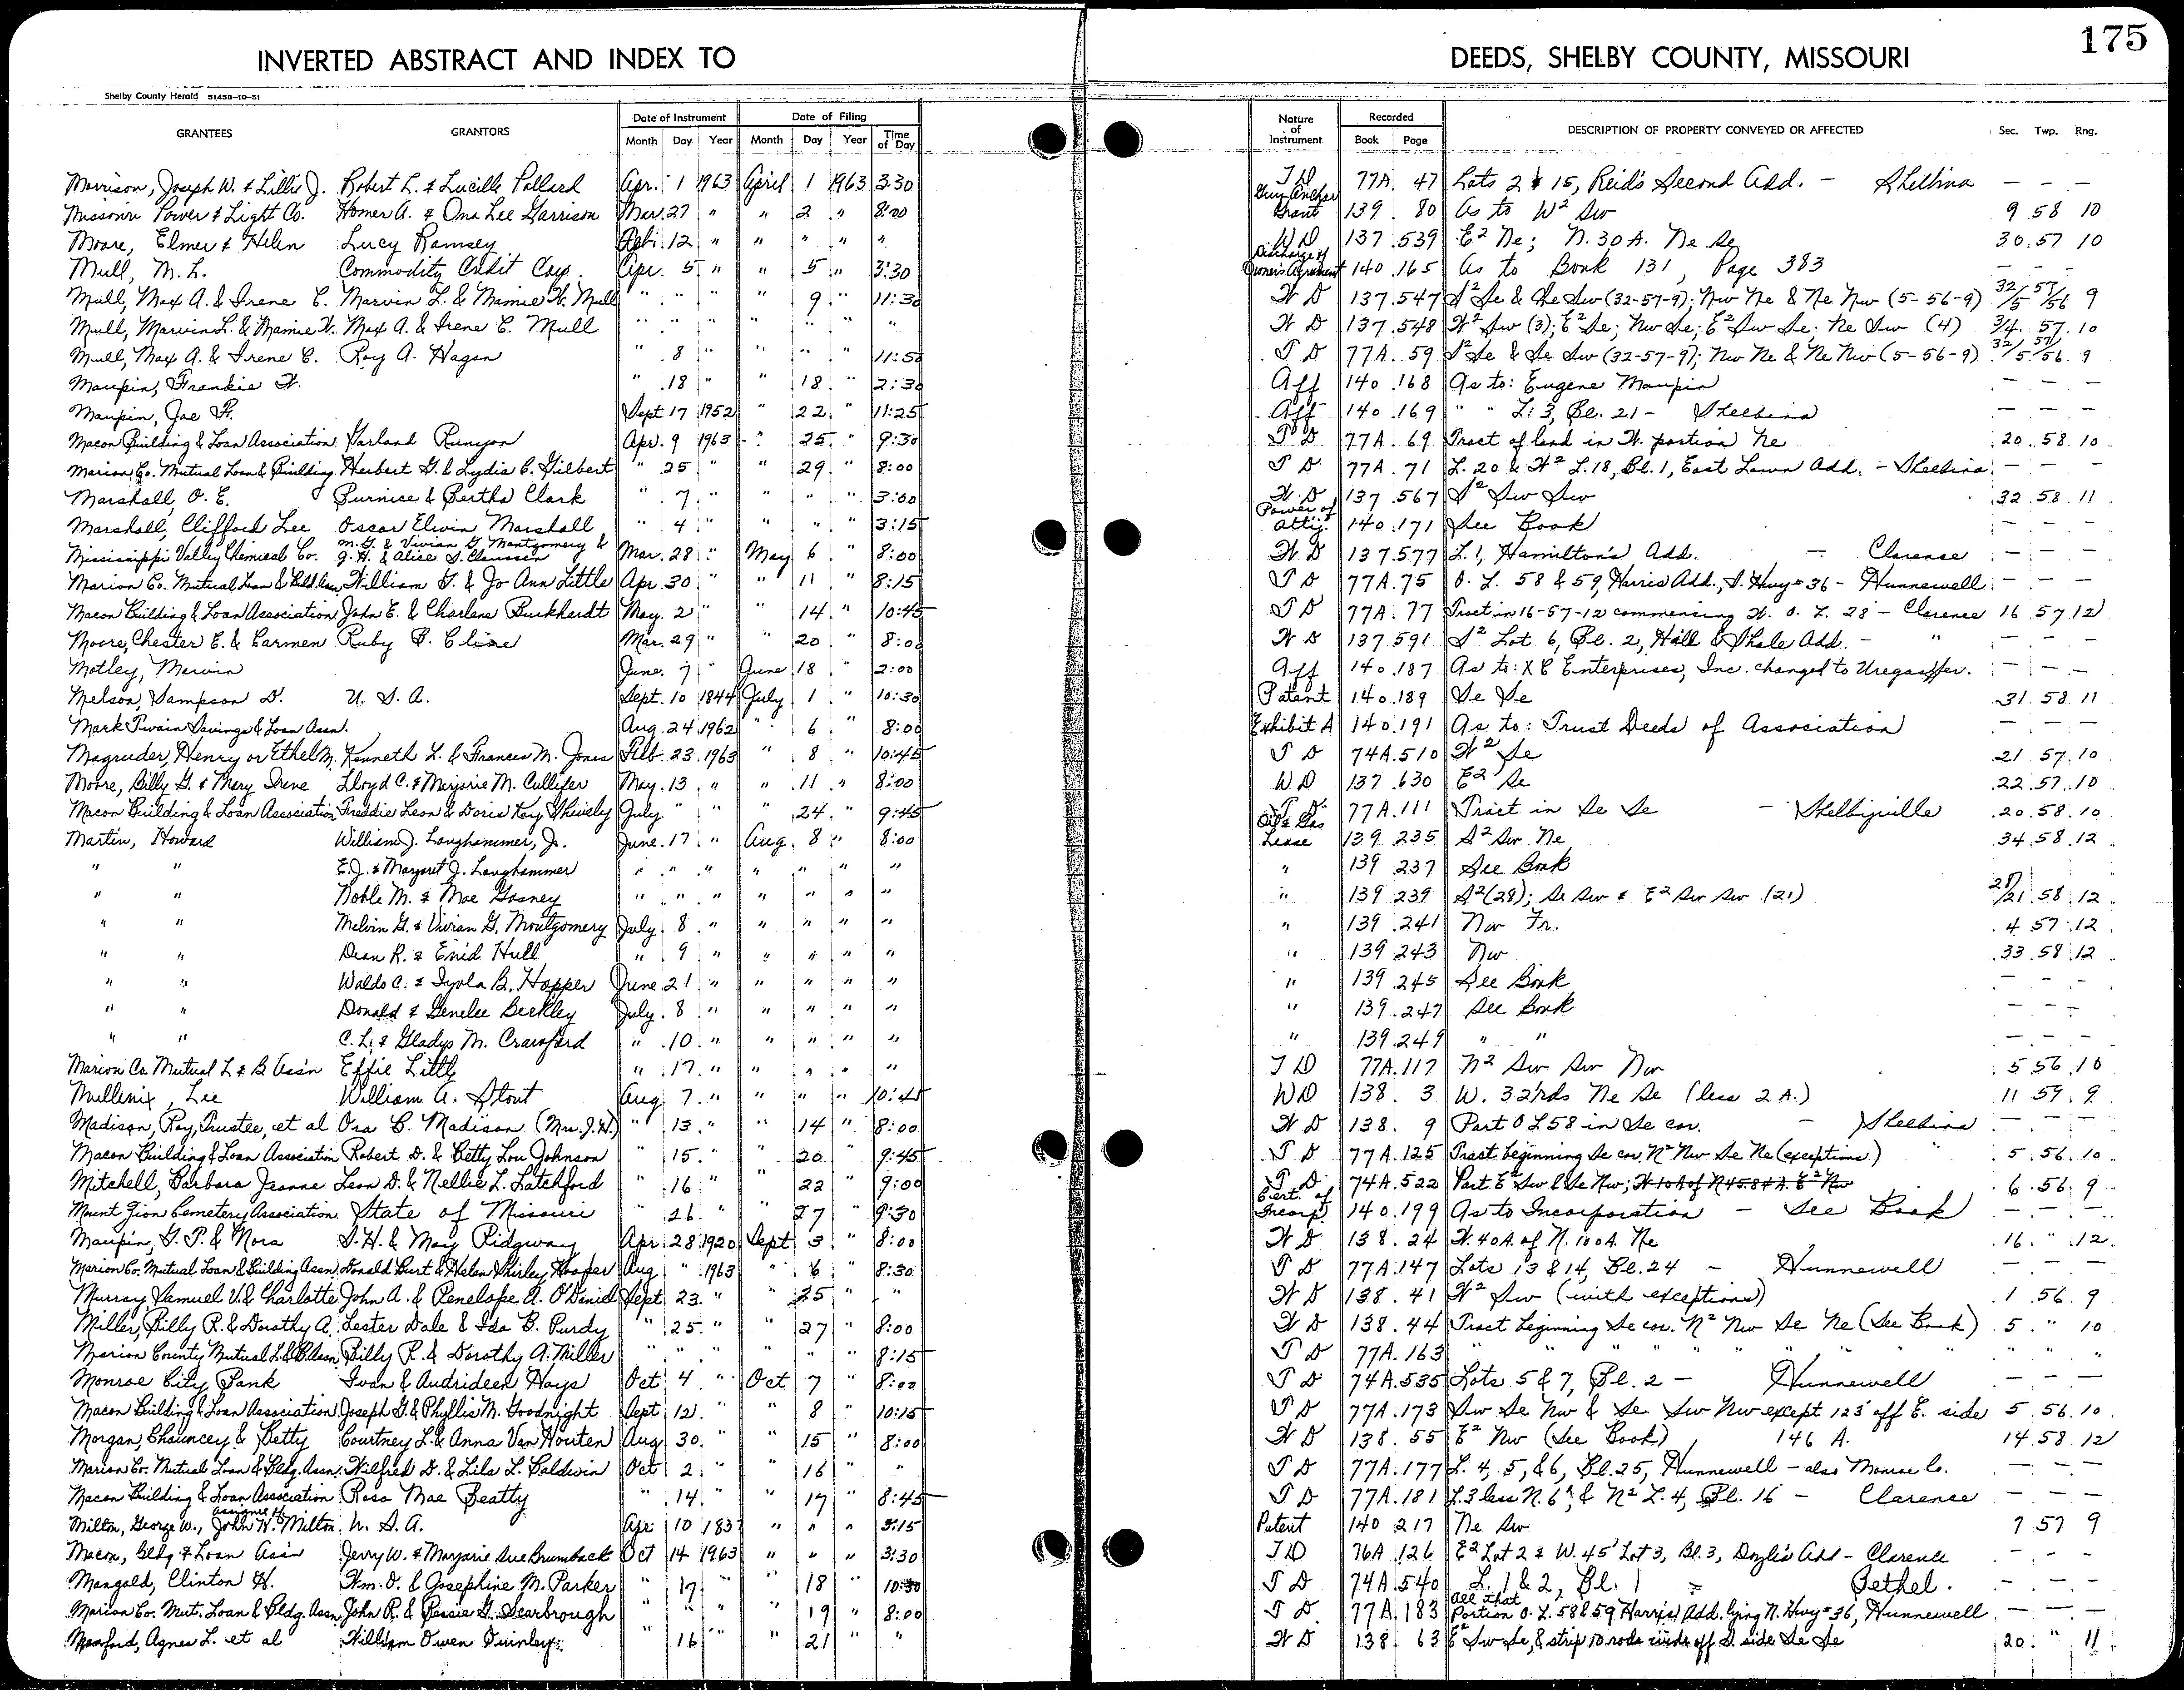 175
INVERTED ABSTRACT AND INDEX TO DEEDS, SHELBY COUNTY, MISSOURI
Shelby County Herald 51458-10-51
GRANTEES GRANTORS Date of Instrument Date of Filing Nature of Instrument Recorded DESCRIPTION OF PROPERTY CONVEYED OR AFFECTED Sec. Twp. Rng.
Month Day Year Month Day Year Time of Day Book Page
Morrison, Joseph W. & Lillie J. Robert L. & Lucille Pollard Apr. 1 1963 April 1 1963 3:30 T D 77A 47 Lots 2 & 15, Reid's Second Add. - Shelbina - - -
Missouri Power & Light Co. Homer A. & Oma Lee Garrison Mar. 27 " " 2 " 8:00 Guy Anchor Grant 139 80 As to W² Sw 9 58 10
Moore, Elmer & Helen Lucy Ramsey Feb. 12 " " " " " W D 137 539 E² Ne; N. 30 A. Ne Se 30 57 10
Mull, M. L. Commodity Credit Corp. Apr. 5 " " 5 " 3:30 Discharge of Owner's Agreement 140 165 As to Book 131, Page 383 - - -
Mull, Max A. & Irene C. Marvin L. & Mamie W. Mull " " " " 9 " 11:30 W D 137 547 S² Se & Se Sw (32-57-9); Nw Ne & Ne Nw (5-56-9) 32/5 57/56 9
Mull, Marvin L. & Mamie W. Max A. & Irene C. Mull " " " " " " " W D 137 548 W² Sw (3); E² Se; Nw Se; E² Sw Se; Ne Sw (4) 3/4 57 10
Mull, Max A. & Irene C. Roy A. Hagan " 8 " " " " 11:50 T D 77A 59 S² Se & Se Sw (32-57-9); Nw Ne & Ne Nw (5-56-9) 32/5 57/56 9
Maupin, Frankie W. " 18 " " 18 " 2:30 Aff 140 168 As to: Eugene Maupin - - -
Maupin, Joe R. Sept 17 1952 " 22 " 11:25 Aff 140 169 " " L. 3, Bl. 21 - Shelbina - - -
Macon Building & Loan Association Garland Runyon Apr 9 1963 " 25 " 9:30 T D 77A 69 Tract of land in W. portion Ne 20 58 10
Marion Co. Mutual Loan & Building Herbert G. & Lydia C. Gilbert " 25 " " 29 " 8:00 T D 77A 71 L. 20 & W² L. 18, Bl. 1, East Lawn Add. - Shelbina - - -
Marshall, O. E. Burnice & Bertha Clark " 7 " " " " 3:00 W D 137 567 S² Sw Sw 32 58 11
Marshall, Clifford Lee Oscar Elwin Marshall " 4 " " " " 3:15 Power of Att'y. 140 171 See Book - - -
Mississippi Valley Chemical Co. M. G. & Vivian G. Montgomery & G. H. & Alice S. Clausen Mar. 28 " May 6 " 8:00 W D 137 577 L. 1, Hamilton's Add. - Clarence - - -
Marion Co. Mutual Loan & Bld. Assn William G. & Jo Ann Little Apr 30 " " 11 " 8:15 T D 77A 75 O. L. 58 & 59, Harris Add., S. Hwy #36 - Hunnewell - - -
Macon Building & Loan Association John E. & Charlene Burkhardt May 2 " " 14 " 10:45 T D 77A 77 Tract in 16-57-12 commencing W. O. L. 28 - Clarence 16 57 12
Moore, Chester E. & Carmen Ruby B. Cline Mar. 29 " " 20 " 8:00 W D 137 591 S² Lot 6, Bl. 2, Hill & Shale Add. - " - - -
Motley, Marvin June 7 " June 18 " 2:00 Aff 140 187 As to: X E Enterprises, Inc. changed to - - -
Melson, Sampson D. U. S. A. Sept. 10 1844 July 1 " 10:30 Patent 140 189 Se Se 31 58 11
Mark Twain Savings & Loan Assn. Aug. 24 1962 " 6 " 8:00 Exhibit A 140 191 As to: Trust Deeds of Association - - -
Magruder, Henry or Ethel M. Kenneth L. & Frances M. Jones Feb. 23 1963 " 8 " 10:45 T D 74A 510 W² Se 21 57 10
Moore, Billy G. & Mary Irene Lloyd C. & Marjorie M. Cullifer May 13 " " 11 " 8:00 W D 137 630 E² Se 22 57 10
Macon Building & Loan Association Freddie Leon & Doris Kay Shively July " " " 24 " 9:45 T D 77A 111 Tract in Se Se - Shelbyville 20 58 10
Martin, Howard William J. Langhammer, Jr. June 17 " Aug. 8 " 8:00 Oil & Gas Lease 139 235 S² Sw Ne 34 58 12
" " E. J. & Margaret J. Langhammer " " " " " " " " 139 237 See Book - - -
" " Noble M. & Mae Gosney " " " " " " " " 139 239 S² (28); Se Sw & E² Sw Sw (21) 28/21 58 12
" " Melvin G. & Vivian G. Montgomery July 8 " " " " " " 139 241 Nw Fr. 4 57 12
" " Dean R. & Enid Hull " 9 " " " " " " 139 243 Nw 33 58 12
" " Waldo C. & Iyola B. Hopper June 21 " " " " " " 139 245 See Book - - -
" " Donald & Genelee Beckley July 8 " " " " " " 139 247 See Book - - -
" " C. L. & Gladys M. Crawford " 10 " " " " " " 139 249 " " - - -
Marion Co. Mutual L & B Ass'n Effie Little " 17 " " " " " T D 77A 117 N² Sw Sw Nw 5 56 10
Mullenix, Lee William A. Stout Aug 7 " " " " 10:45 W D 138 3 W. 32 rds Ne Se (less 2 A.) 11 59 9
Madison, Roy, Trustee, et al Ora C. Madison (Mrs. J. W.) " 13 " " 14 " 8:00 W D 138 9 Part O L 58 in Se cor. - Shelbina - - -
Macon Building & Loan Association Robert D. & Betty Lou Johnson " 15 " " 20 9:45 T D 77A 125 Tract beginning Se cor. N² Nw Se Ne (exceptions) " 5 56 10
Mitchell, Barbara Jeanne Leon D. & Nellie L. Latchford " 16 " " 22 " 9:00 T D 74A 522 Part E² Sw & Se Nw; W 10 A of N 45.84 A. E² Nw 6 56 9
Mount Zion Cemetery Association State of Missouri " 26 " " 27 " 9:30 Cert. of Incorp. 140 199 As to Incorporation - See Book - - -
Maupin, G. P. & Nora S. H. & May Ridgway Apr. 28 1920 Sept 3 " 8:00 W D 138 24 W. 40 A. of N. 100 A. Ne 16 " 12
Marion Co. Mutual Loan & Building Assn Donald Burt & Helen Shirley Hoofer Aug " 1963 " 6 " 8:30 T D 77A 147 Lots 13 & 14, Bl. 24 - Hunnewell - - -
Murray, Samuel V. & Charlotte John A. & Penelope A. O'Daniel Sept 23 " " 25 " " W D 138 41 W² Sw (with exceptions) 1 56 9
Miller, Billy R. & Dorothy A. Lester Dale & Ida B. Purdy " 25 " " 27 " 8:00 W D 138 44 Tract beginning Se cor. N² Nw Se Ne (See Book) 5 " 10
Marion County Mutual L. & B. Assn Billy R. & Dorothy A. Miller " " " " " " 8:15 T D 77A 163 " " " " " " " " " " "
Monroe City Bank Ivan & Audrideen Hays Oct 4 " Oct 7 " 8:00 T D 74A 535 Lots 5 & 7, Bl. 2 - Hunnewell - - -
Macon Building & Loan Association Joseph G. & Phyllis M. Goodnight Sept 12 " " 8 " 10:15 T D 77A 173 Sw Se Nw & Se Sw Nw except 123' off E. side 5 56 10
Morgan, Chauncey & Betty Courtney L. & Anna Van Houten Aug 30 " " 15 " 8:00 W D 138 55 E² Nw (See Book) 146 A. 14 58 12
Marion Co. Mutual Loan & Bldg. Assn. Wilfred D. & Lila L. Baldwin Oct 2 " " 16 " " T D 77A 177 L. 4, 5, & 6, Bl. 25, Hunnewell - also Monroe Co. - - -
Macon Building & Loan Association Rosa Mae Beatty " 14 " " 17 " 8:45 T D 77A 181 L. 3 less N. 6', & N² L. 4, Bl. 16 - Clarence - - -
Milton, George W., assignee of John W. Milton U. S. A. Apr 10 1837 " " " 3:15 Patent 140 217 Ne Sw 7 57 9
Macon, Bldg & Loan Ass'n Jerry W. & Marjorie Sue Brumback Oct 14 1963 " " " 3:30 T D 76A 126 E² Lot 2 & W. 45' Lot 3, Bl. 3, Doyle's Add - Clarence - - -
Mangold, Clinton H. Wm. O. & Josephine M. Parker " 17 " " 18 " 10:30 T D 74A 540 L. 1 & 2, Bl. 1 - Bethel. - - -
Marion Co. Mut. Loan & Bldg. Assn John R. & Bessie G. Scarbrough " " " " 19 " 8:00 T D 77A 183 All that Portion O. L. 58 & 59 Harris' Add. lying N. Hwy #36, Hunnewell - - -
Agnes L. et al William Owen Quinley " 16 " " 21 " " W D 138 63 E² Sw Se, & strip 10 rods wide off S. side Se Se 20 " 11